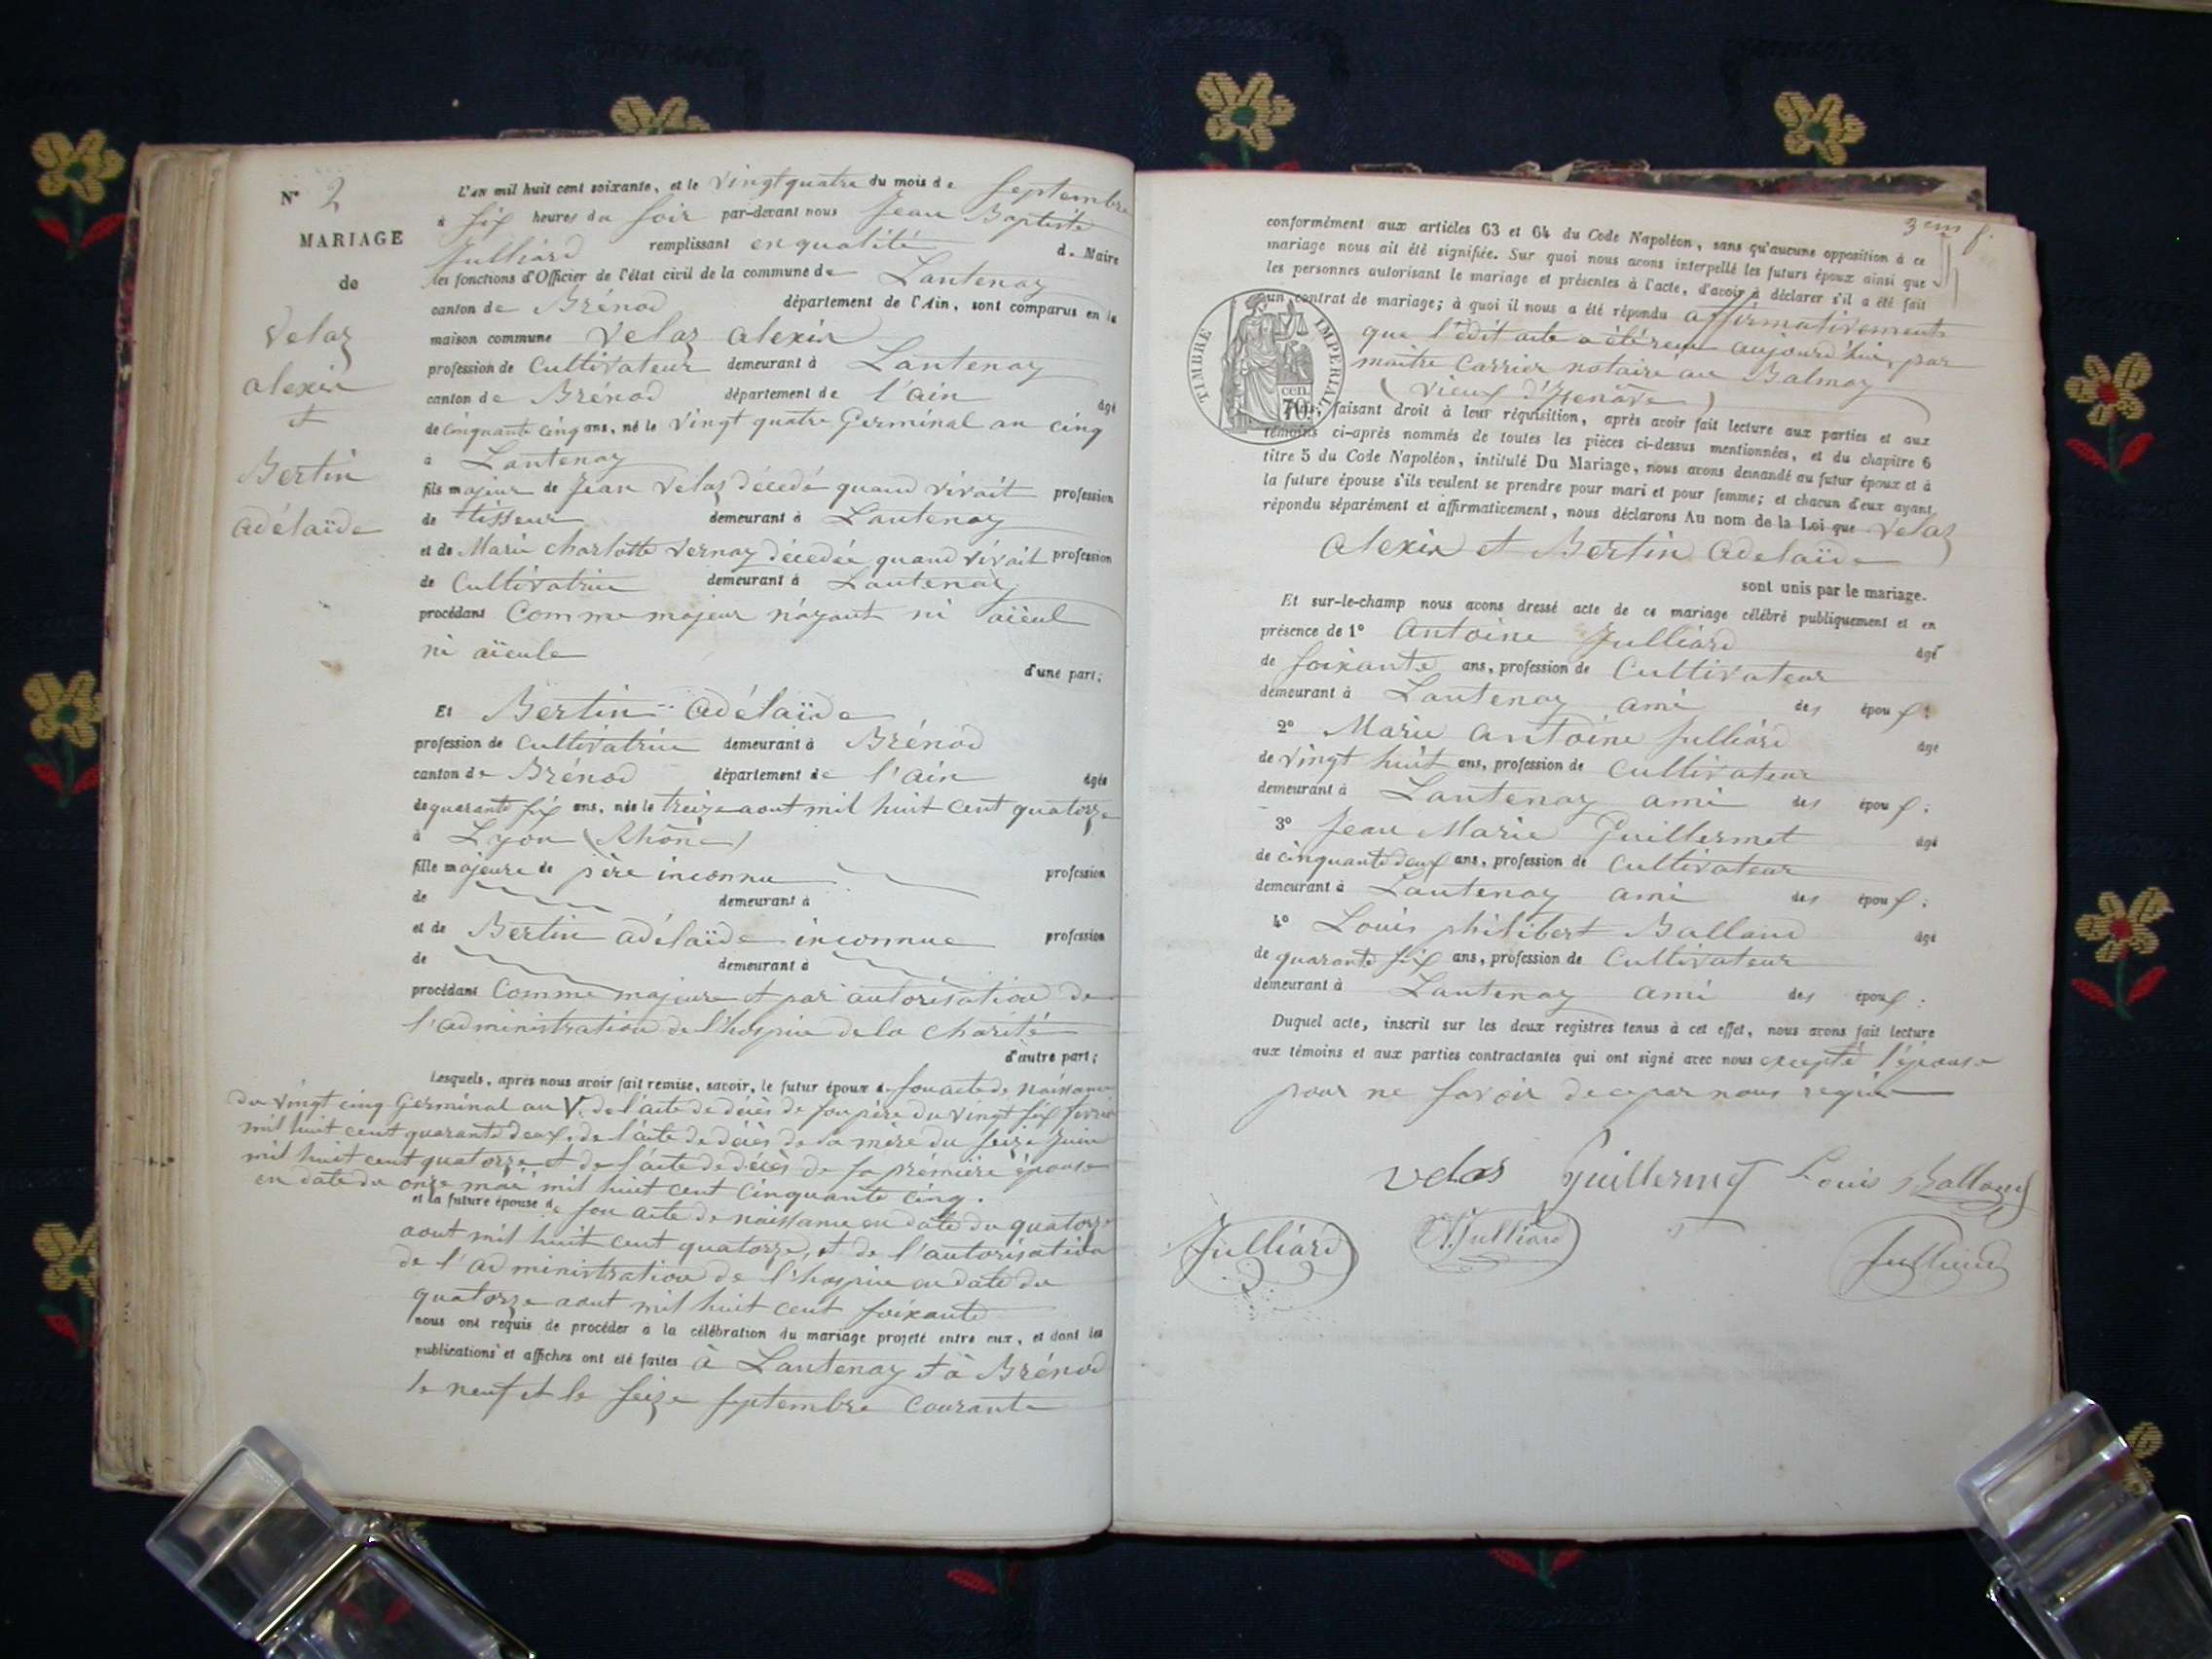 N° 2
MARIAGE
de
Velaz
alexis
et
Bertin
adélaïde
L'an mil huit cent soixante, et le vingt quatre du mois de septembre
à six heures du soir par-devant nous Jean Baptiste
Julliard remplissant en qualité de Maire
les fonctions d'Officier de l'état civil de la commune de Lantenay
canton de Brénod département de l'Ain, sont comparus en la
maison commune Velaz alexis
profession de Cultivateur demeurant à Lantenay
canton de Brénod département de l'ain âgé
de cinquante cinq ans, né le vingt quatre Germinal an cinq
à Lantenay
fils majeur de Jean Velaz décédé quand vivait profession
de tisseur demeurant à Lantenay
et de Marie charlotte Vernay décédée quand vivait profession
de Cultivatrice demeurant à Lantenay
procédant Comme majeur n'ayant ni aïeul
ni aïeule
d'une part;
Et Bertin adélaïde
profession de cultivatrice demeurant à Brénod
canton de Brénod département de l'ain âgée
de quarante six ans, née le treize aout mil huit cent quatorze
à Lyon (Rhône)
fille majeure de père inconnu profession
de demeurant à
et de Bertin adélaïde inconnue profession
de demeurant à
procédant Comme majeure et par autorisation de
l'administration de l'hospice de la charité
d'autre part;
Lesquels, après nous avoir fait remise, savoir, le futur époux de son acte de naissance
du vingt cinq Germinal an V. de l'acte de décès de son père du vingt six février
mil huit cent quarante deux, de l'acte de décès de sa mère du seize Juin
mil huit cent quatorze et de l'acte de décès de sa prémière épouse
en date du onze mai mil huit cent cinquante cinq.
et la future épouse de son acte de naissance en date du quatorze
aout mil huit cent quatorze, et de l'autorisation
de l'administration de l'hospice en date du
quatorze aout mil huit cent soixante
nous ont requis de procéder à la célébration du mariage projeté entre eux, et dont les
publications et affiches ont été faites à Lantenay et à Brénod
le neuf et le seize septembre Courante
3em f.
conformément aux articles 63 et 64 du Code Napoléon, sans qu'aucune opposition à ce
mariage nous ait été signifiée. Sur quoi nous avons interpellé les futurs époux ainsi que
les personnes autorisant le mariage et présentes à l'acte, d'avoir à déclarer s'il a été fait
un contrat de mariage; à quoi il nous a été répondu affirmativement
que l'édit acte a été reçu aujourd'hui, par
maitre Carrier notaire au Balmay
(vieux d'Izenave)
TIMBRE IMPERIAL
70 cen
faisant droit à leur réquisition, après avoir fait lecture aux parties et aux
témoins ci-après nommés de toutes les pièces ci-dessus mentionnées, et du chapitre 6
titre 5 du Code Napoléon, intitulé Du Mariage, nous avons demandé au futur époux et à
la future épouse s'ils veulent se prendre pour mari et pour femme; et chacun d'eux ayant
répondu séparément et affirmativement, nous déclarons Au nom de la Loi que Velaz
alexis et Bertin adelaïde
sont unis par le mariage.
Et sur-le-champ nous avons dressé acte de ce mariage célébré publiquement et en
présence de 1° antoine Julliard âgé
de soixante ans, profession de Cultivateur
demeurant à Lantenay ami des époux:
2° Marie antoine Julliard âgé
de vingt huit ans, profession de cultivateur
demeurant à Lantenay ami des époux:
3° Jean Marie Guillermet âgé
de cinquante deux ans, profession de cultivateur
demeurant à Lantenay ami des époux:
4° Louis philibert Balland âgé
de quarante six ans, profession de Cultivateur
demeurant à Lantenay ami des époux:
Duquel acte, inscrit sur les deux registres tenus à cet effet, nous avons fait lecture
aux témoins et aux parties contractantes qui ont signé avec nous excepté l'épouse
pour ne savoir de ce par nous requis
velas Guillermet Louis Balland
Julliard Julliard Julliard